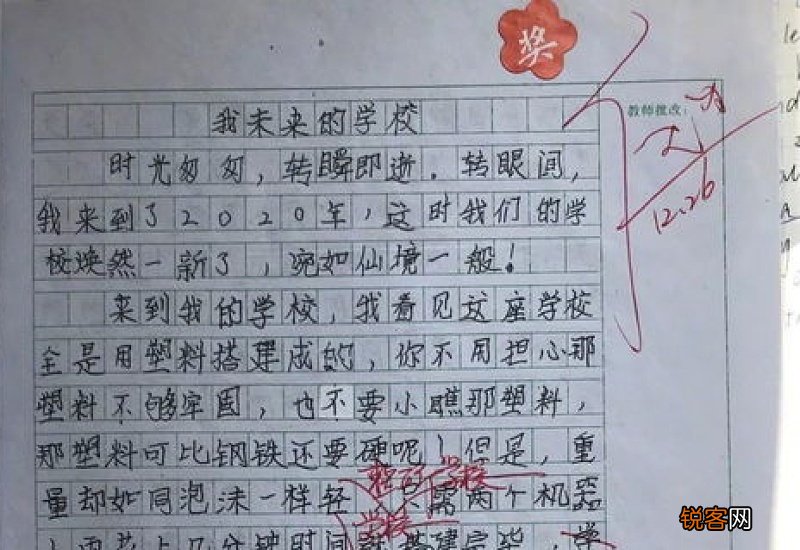 奖
教师批改:
我未来的学校
时光匆匆，转瞬即逝．转眼间，
我来到了2020年，这时我们的学
校焕然一新了，宛如仙境一般！
来到我的学校，我看见这座学校
全是用塑料搭建成的，你不用担心那
塑料不够牢固，也不要小瞧那塑料，
那塑料可比钢铁还要硬呢！但是，重
学校
量却如同泡沫一样轻 只需两个机器
学校
人再花上几分钟时间就搭建完毕，学
12.26
锐客网